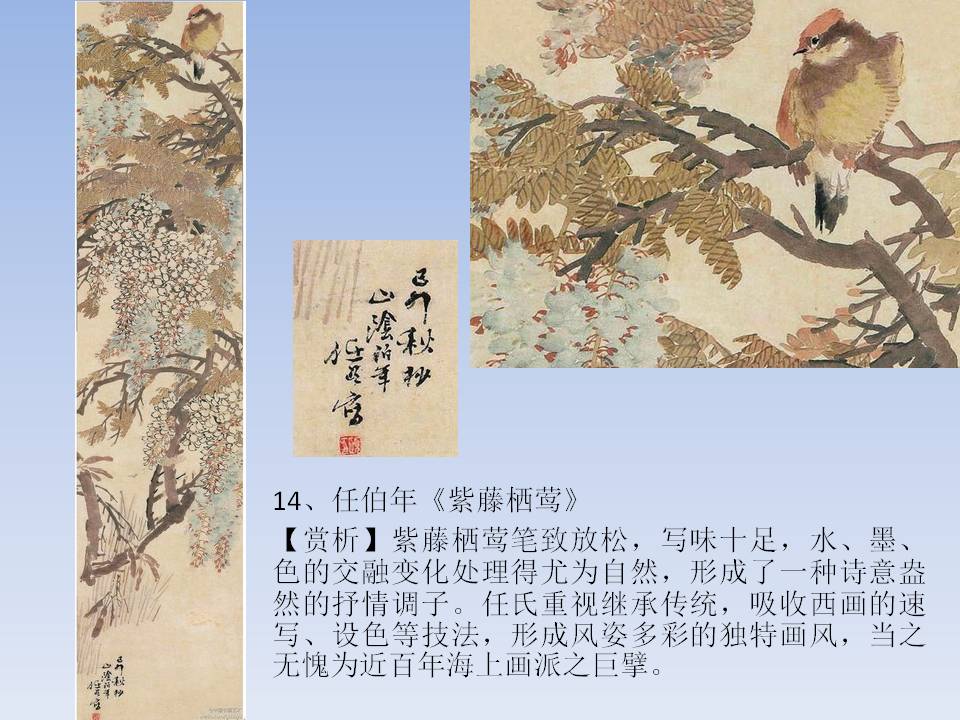 己卯秋杪
山陰伯年
任頤寫
14、任伯年《紫藤栖莺》
【赏析】紫藤栖莺笔致放松，写味十足，水、墨、
色的交融变化处理得尤为自然，形成了一种诗意盎
然的抒情调子。任氏重视继承传统，吸收西画的速
写、设色等技法，形成风姿多彩的独特画风，当之
无愧为近百年海上画派之巨擘。
己卯秋杪
山陰伯年
任頤寫